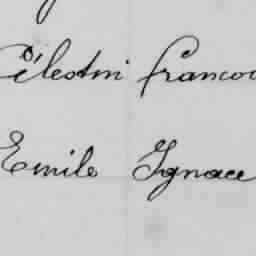 Célestin francoi
Emile Ignace